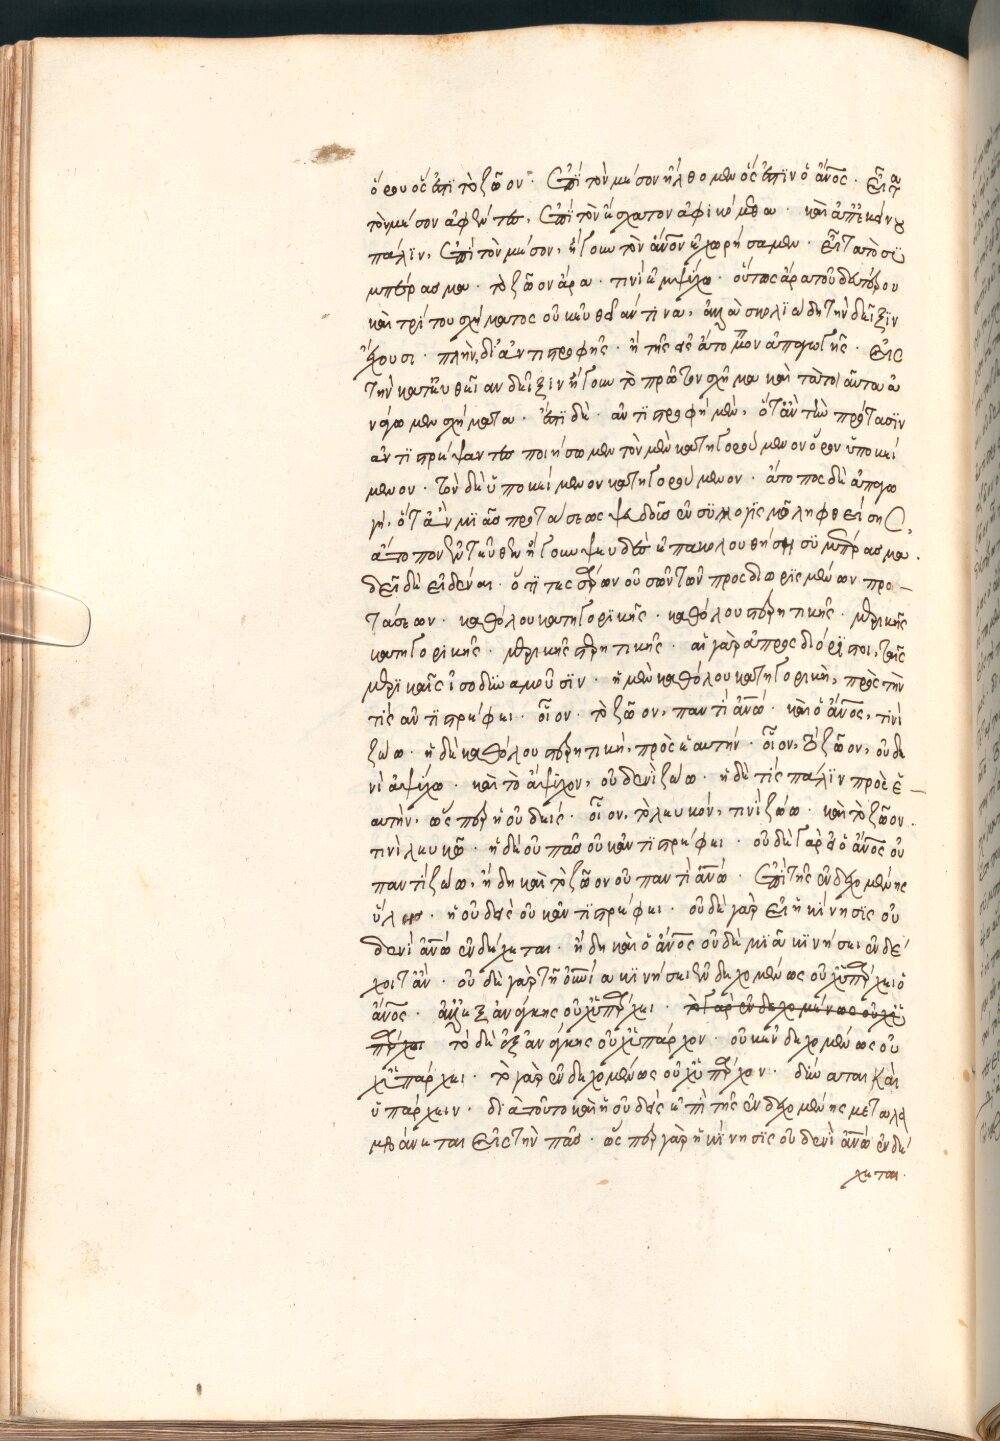 ὅρου ὅς ἐπὶ τὸ ζῶον · ἐπὶ τὸν μέσον ἤλθομεν ὅς ἐστιν ὁ ἄνος · εἶτα
τὸν μέσον ἀφέντες, ἐπὶ τὸν ἔσχατον ἀφικόμεθα · καὶ ἀπ' ἐκείνου
πάλιν, ἐπὶ τὸν μέσον, ἤγουν τὸν ἄνον ἐχωρήσαμεν · εἶτα τὸ συ
μπέρασμα · τὸ ζῶον ἄρα · τινὶ ἐμψύχω · οὕτως ἄρα τοῦ δευτέρου
καὶ τρίτου σχήματος οὐκ εὐθεῖαν τινα, ἀλλὰ σκολιώδη τὴν δεῖξιν
ἔχουσι · πλὴν, δι' ἀντιστροφῆς · ἢ τῆς εἰς ἄτοπον ἀπαγωγῆς · εἰς
τὴν κατ' εὐθεῖαν δεῖξιν ἤγουν τὸ πρῶτον σχῆμα καὶ ταῦτα ἀ
νάγωμεν σχήματα · ἔστι δὲ · ἀντιστροφὴ μὲν, ὅτ' ἂν τὴν πρότασιν
ἀντιστρέψαντες ποιήσωμεν τὸν μὲν κατηγορούμενον ὅρον ὑποκεί
μενον · τὸν δὲ ὑποκείμενον κατηγορούμενον · ἄτοπος δὲ ἀπαγω
γὴ, ὅτ' ἂν μιᾶς προτάσεως ψευδοῦς ἐν συλλογισμῶ ληφθείσης,
ἄτοπον ἐντεῦθεν ἤγουν ψευδὲς ἐπακολουθήση συμπέρασμα.
δεῖ δὲ εἰδέναι · ὅτι τεσσάρων οὐσῶν τῶν προσδιωρισμένων προ-
τάσεων · καθόλου κατηγορικῆς · καθόλου στερητικῆς · μερικῆς
κατηγορικῆς · μερικῆς στερητικῆς · αἱ γὰρ ἀπροσδιόριστοι, ταῖς
μερικαῖς ἰσοδυναμοῦσιν · ἡ μὲν καθόλου κατηγορικὴ, πρὸς τὴν
τίς ἀντιστρέφει · οἷον · τὸ ζῶον, παντὶ ἀνω · καὶ ὁ ἄνος, τινὶ
ζώω · ἡ δὲ καθόλου στερητικὴ, πρὸς ἑαυτήν · οἷον, τὸ ζῶον, οὐδε
νὶ ἀψύχω · καὶ τὸ ἄψυχον, οὐδενὶ ζώω · ἡ δὲ τίς πάλιν πρὸς ἑ-
αυτὴν, ὥσπερ ἡ οὐδείς · οἷον, τὸ λευκόν, τινὶ ζώω · καὶ τὸ ζῶον.
τινὶ λευκῶ · ἡ δὲ οὐ πᾶς οὐκ ἀντιστρέφει · οὐδὲ γὰρ εἰ ὁ ἄνος οὐ
παντὶ ζώω, ἤδη καὶ τὸ ζῶον οὐ παντὶ ἀνω · ἐπὶ τῆς ἐνδεχομένης
ὕλης · ἡ οὐδεὶς οὐκ ἀντιστρέφει · οὐδὲ γὰρ εἰ ἡ κίνησις οὐ
δενὶ ἀνω ἐνδέχεται · ἤδη καὶ ὁ ἄνος οὐδεμιᾶ κινήσει ἐνδέ
χοιτ' ἂν · οὐδὲ γὰρ τῆ κινήσει ἐνδεχομένως οὐχ ὑπάρχει ὁ
ἄνος · ἀλλ' ἐξ ἀνάγκης οὐχ ὑπάρχει · τὸ γὰρ ἐνδεχομένως οὐχ ὑ
πάρχει τὸ δὲ ἐξ ἀνάγκης οὐχ ὑπάρχον · οὐκ ἐνδεχομένως οὐ
χ' ὑπάρχει · τὸ γὰρ ἐνδεχομένως οὐχ ὑπάρχον · δύναται καὶ
ὑπάρχειν · διὰ τοῦτο καὶ ἡ οὐδεὶς ἐπὶ τῆς ἐνδεχομένης μεταλα
μβάνεται εἰς τὴν πᾶς · ὥσπερ γὰρ ἡ κίνησις οὐδενὶ ἀνω ἐνδέ
χεται.